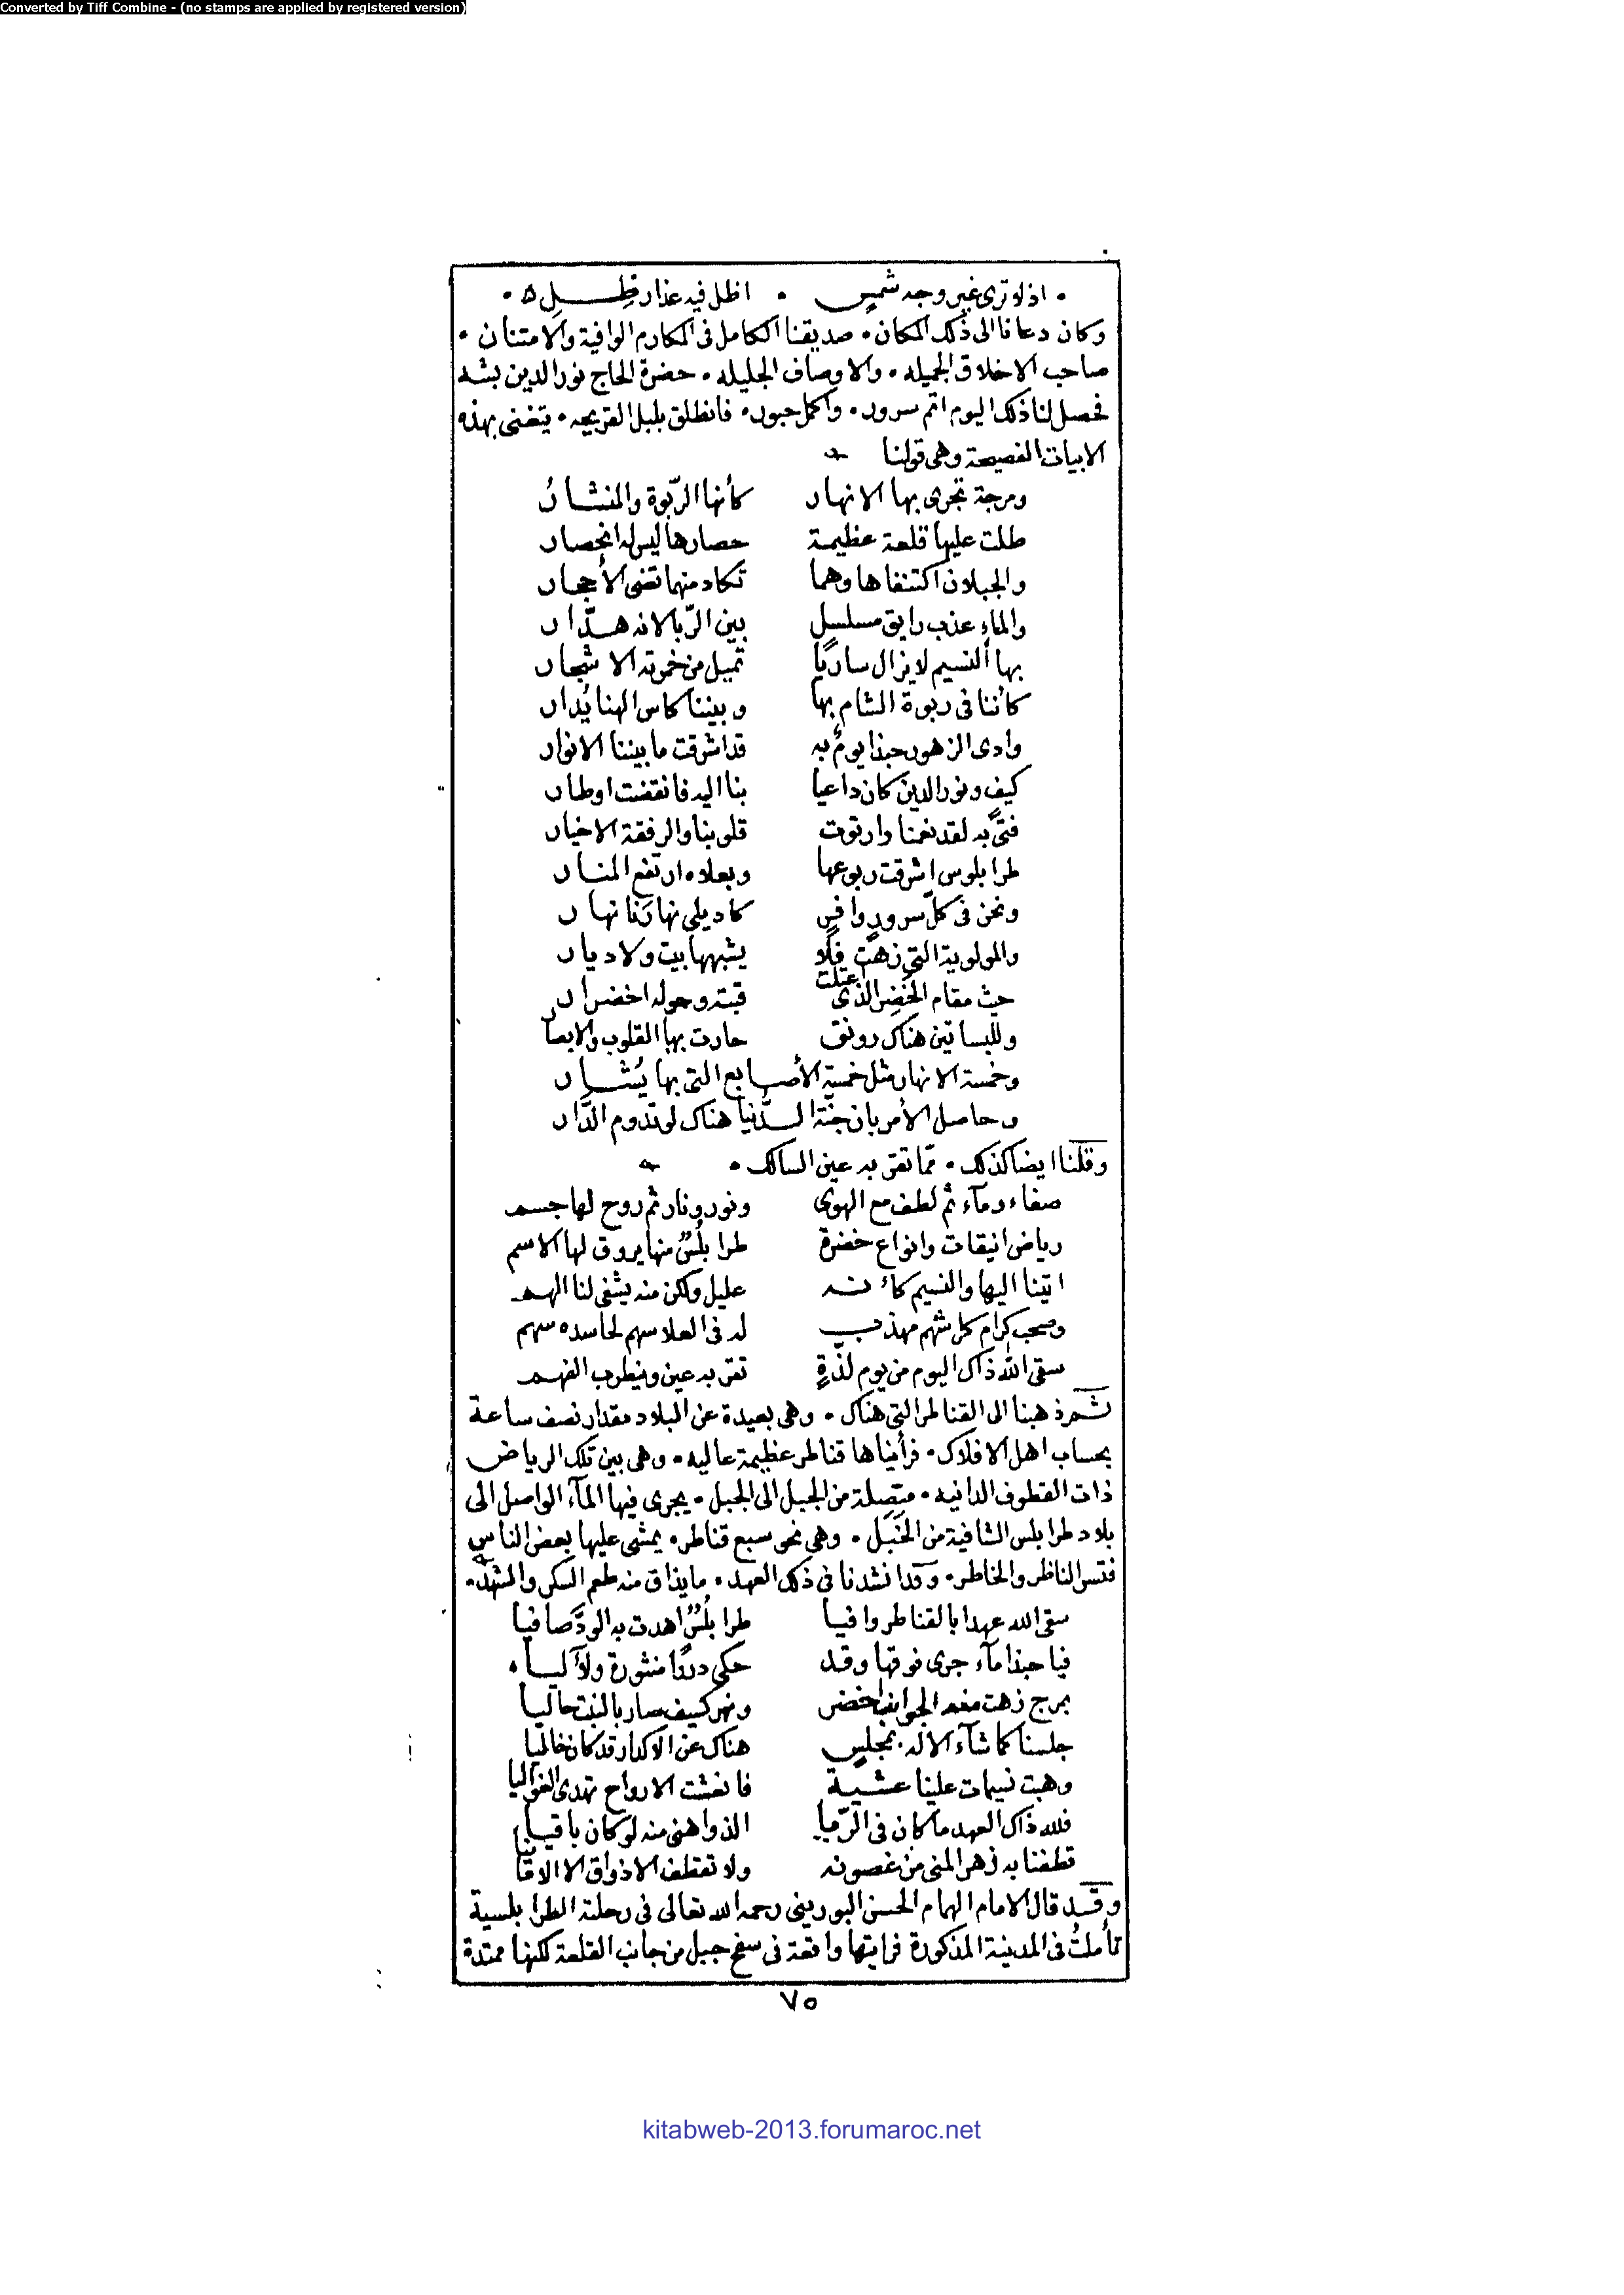 Converted by Tiff Combine - (no stamps are applied by registered version)
• اذ لا ترى غير وجه شمس • اظل فيه عذار ظل •
وكان دعانا الى ذلك المكان • صديقنا الكامل فى المكارم الوافية والامتنان •
صاحب الاخلاق الجميله • والاوصاف الجليله • حضرة الحاج نور الدين بشه
فحصل لنا ذلك اليوم اتم سرور • واكمل حبور • فانطلق بلبل القريحه • يتغنى بهذه
الابيات الفصيحة وهى قولنا
ومرجة تجرى بها الانهار كأنها الربوة والمنشار
طلت عليها قلعة عظيمة حصارها ليس له انحصار
والجبلان اكتنفاها وهما تكاد منهما تضى الأحجار
والماء عذب رايق مسلسل بين الربا لانه هدّار
بها النسيم لا يزال ساريًا تميل من خمرته الاشجار
كاننا فى ربوة الشام بها وبيننا كاس الهنا يُدار
وادى الزهور حبذا يوم به قد اشرقت ما بيننا الانوار
كيف ونور الدين كان داعيا بنا اليه فانقضت اوطار
فتىً به لقد نعمنا وارتوت قلوبنا والرفقة الاخيار
طرابلوس اشرقت ربوعها وبعلاه ارتفع المنار
ونحن فى كلّ سرورٍ وافرٍ كاد يلى نهارَنا نهار
والمولوية التى زهت فلا يشبهها بيت ولا ديار
حث مقام الخضر الذى اعتلت قبته وحوله اخضرار
وللبساتين هناك رونق حارت بها القلوب والابصار
وخمسة الانهار مثل خمسة الأصابع التى بها يُشار
وحاصل الأمر بان جنّة الدُّنيا هناك لو تدوم الدَّار
وقلنا ايضا كذلك • مما تقر به عين السالك •
صفاء وماء ثم لطف مع الهوى ونور ونار ثم روح لها جسم
رياض انيقات وانواع خضرة طرابلُسٌ منها يروق لها الاسم
اتينا اليها والنسيم كانه عليل ولكن منه يشفى لنا الهم
وصحب كرام كل شهم مهذب له فى العلا سهم لحاسده سهم
سقى الله ذاك اليوم من يوم لذّةٍ تقر به عين ويطرب الفهم
ثم ذهبنا الى القناطر التى هناك • وهى بعيدة عن البلاد مقدار نصف ساعة
بحساب اهل الافلاك • فرأيناها قناطر عظيمة عاليه • وهى بين تلك الرياض
ذات القطوف الدانيه • متصلة من الجبل الى الجبل • يجرى فيها المآء الواصل الى
بلاد طرابلس الشافية من الخَبَل • وهى نحو سبع قناطر • يمشى عليها بعض الناس
فتسر الناظر والخاطر • وقد انشدنا فى ذلك العهد • ما يذاق منه طعم السكر والشهد •
سقى الله عهدا بالقناطر وافيا طرابلُسٌ اهدت به الودّ صافيا
فيا حبذا مآء جرى فوقها وقد حكى دررًا منثورة ولآليا •
بمرج زهت منه الجوانب اخضر ونهر كسيف صار بالنبت حاليا
جلسنا كما شآء الاله بمجلس هناك عن الاكدار قد كان خاليا
وهبت نسيمات علينا عشية فانعشت الارواح تهدى الغواليا
فلله ذاك العهد ما كان فى الرّبا الذ واهنى منه لو كان باقيا
قطفنا به زهر المنى من غصونه ولا تقطف الاذواق الا الاقاحيا
وقد قال الامام الهمام الحسن البورينى رحمه الله تعالى فى رحلته الطرابلسية
تأملتُ فى المدينة المذكورة فرايتها واقعة فى سفح جبل من جانب القلعة لكنها ممتدة
٧٥
kitabweb-2013.forumaroc.net